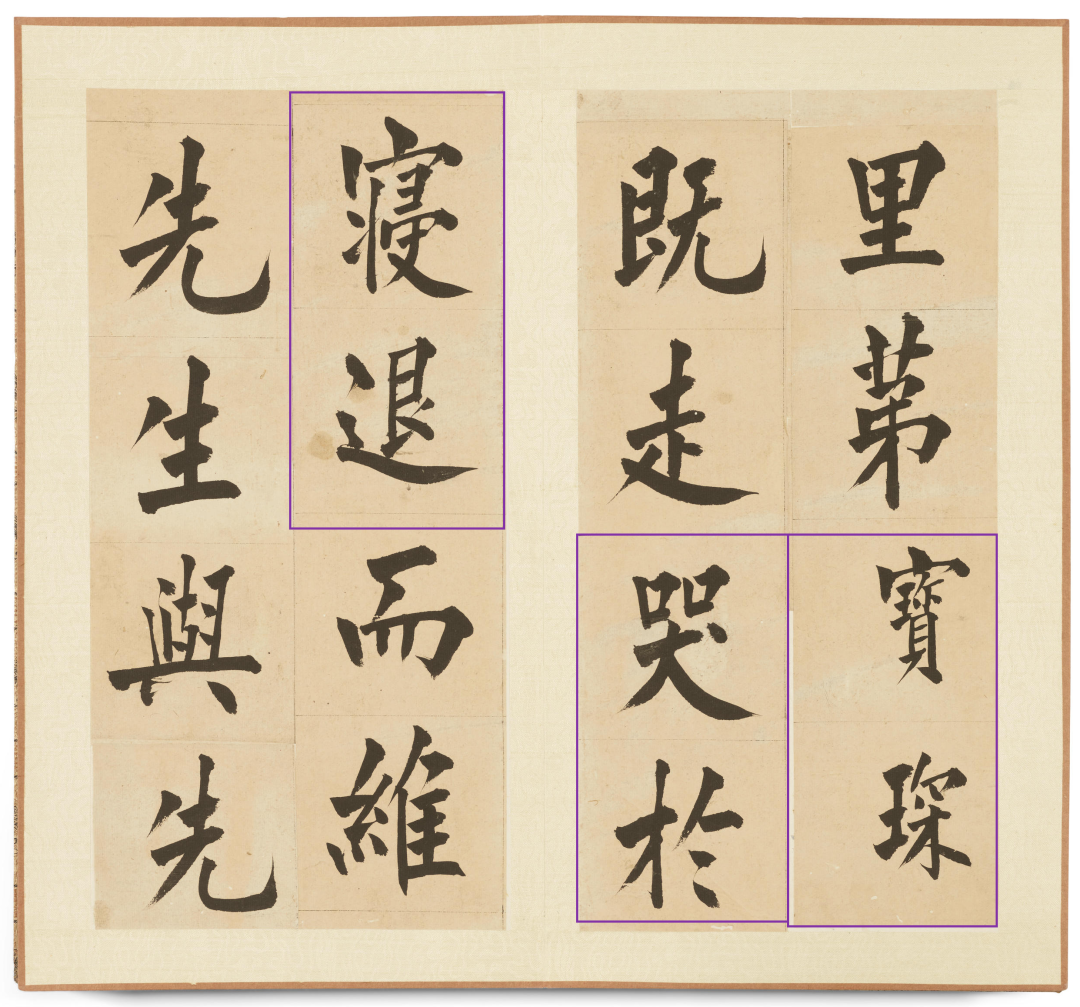 里苐寶琛
既走哭於
寢退而維
先生與先